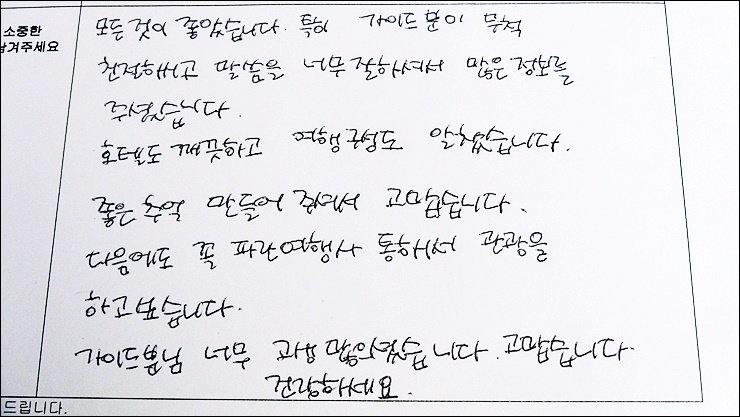 소중한
남겨주세요
모든것이 좋았습니다. 특히 가이드분이 무척
친절하시고 말씀을 너무 잘하셔서 많은 정보를
주셨습니다.
호텔도 깨끗하고 여행구성도 알찼습니다.
좋은 추억 만들어 줘서 고맙습니다.
다음에도 꼭 파란여행사 통해서 관광을
하고 싶습니다.
가이드분님 너무 고생 많으셨습니다. 고맙습니다.
건강하세요.
드립니다.